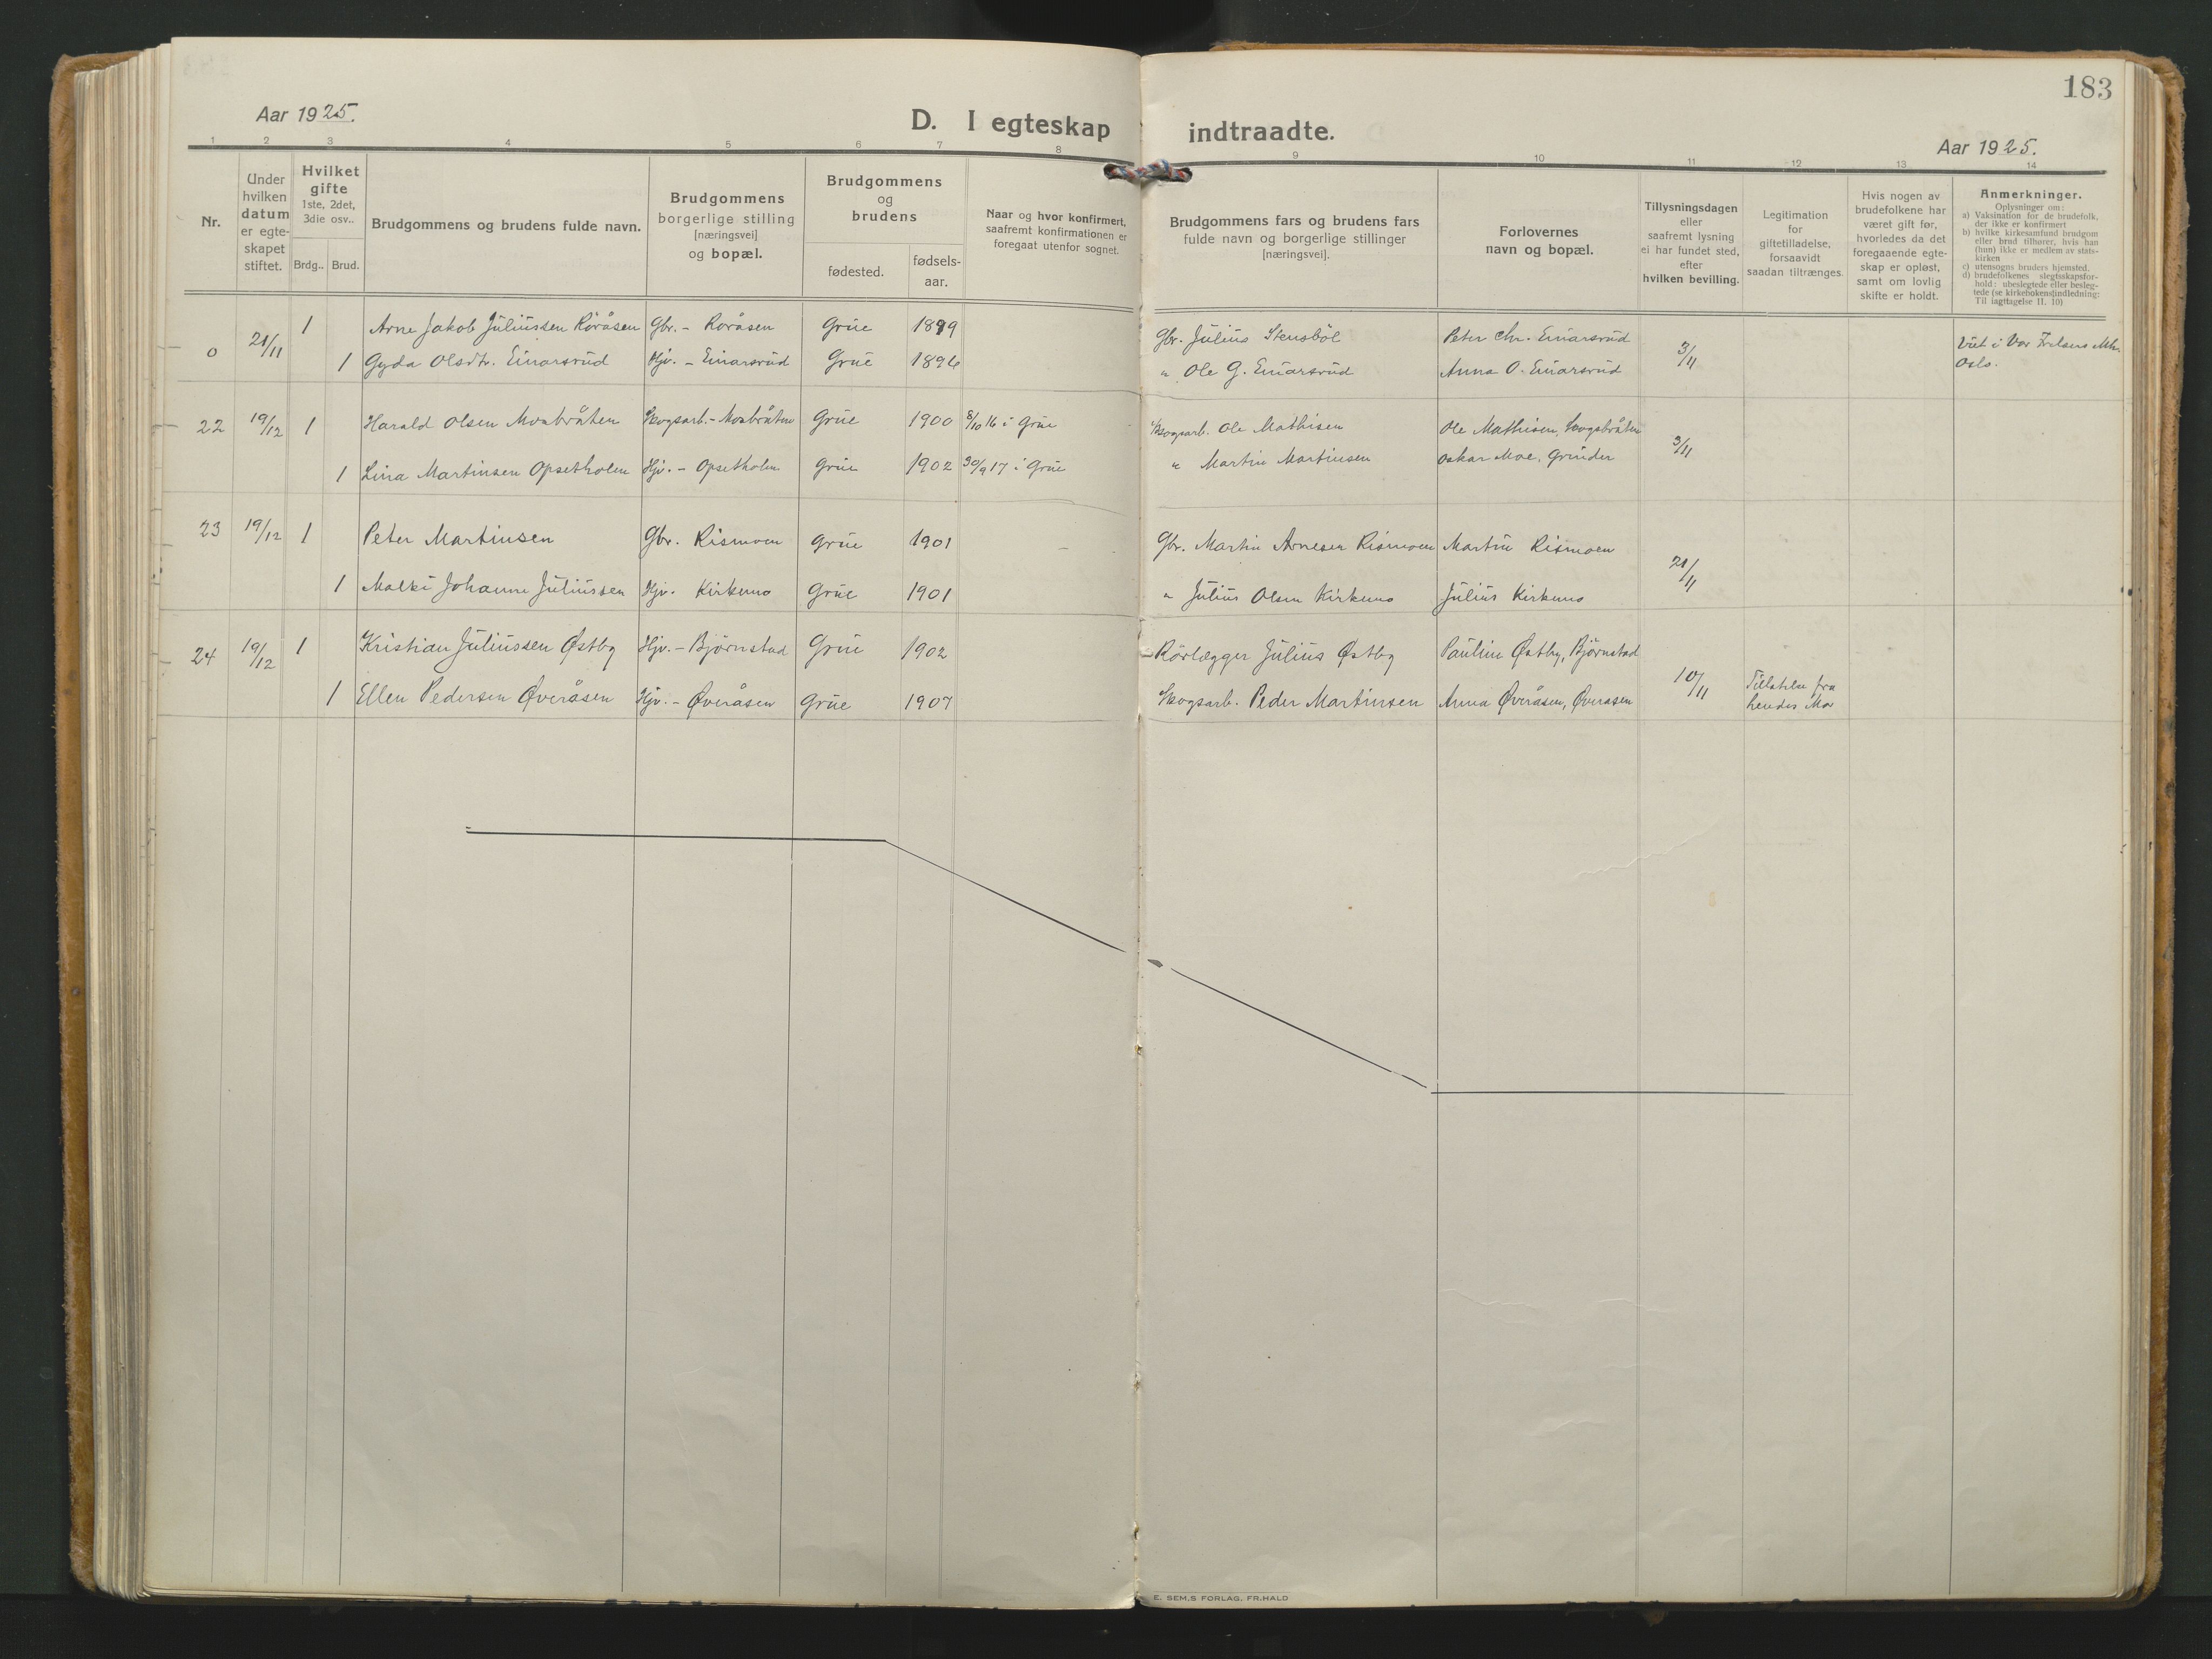 183
Aar 1925.
D. I egteskap indtraadte.
Aar 1925.
1 2 3 4 5 6 7 8 9 10 11 12 13 14
Nr.
Under
hvilken
datum
er egte-
skapet
stiftet.
Hvilket
gifte
1ste, 2det,
3die osv..
Brdg.. Brud.
Brudgommens og brudens fulde navn.
Brudgommens
borgerlige stilling
[næringsvei]
og bopæl.
Brudgommens
og
brudens
fødested.
fødsels-
aar.
Naar og hvor konfirmert,
saafremt konfirmationen er
foregaat utenfor sognet.
Brudgommens fars og brudens fars
fulde navn og borgerlige stillinger
[næringsvei].
Forlovernes
navn og bopæl.
Tillysningsdagen
eller
saafremt lysning
ei har fundet sted,
efter
hvilken bevilling.
Legitimation
for
giftetilladelse,
forsaavidt
saadan tiltrænges.
Hvis nogen av
brudefolkene har
været gift før,
hvorledes da det
foregaaende egte-
skap er opløst,
samt om lovlig
skifte er holdt.
Anmerkninger.
Oplysninger om:
a) Vaksination for de brudefolk,
der ikke er konfirmert
b) hvilke kirkesamfund brudgom
eller brud tilhører, hvis han
(hun) ikke er medlem av stats-
kirken
c) utensogns bruders hjemsted.
d) brudefolkenes slegtsskapsfor-
hold: ubeslegtede eller besleg-
tede (se kirkebokens indledning:
Til iagttagelse II. 10)
0 21/11 1 Arne Jakob Juliussen Röråsen Gbr. - Roråsen Grue 1899 Gbr. Julius Stensböl Peter Chr. Einarsrud 3/11 Viet i Vor Frelsers
1 Gyda Olsdtr. Einarsrud Hjv. - Einarsrud Grue 1896 " Ole G. Einarsrud Anna O. Einarsrud Oslo.
22 19/12 1 Harald Olsen Moabråten Skogsarb. - Moabråten Grue 1900 8/10 16 i Grue Skogsarb. Ole Mathisen Ole Mathisen, Skogsbråten 3/11
1 Lina Martinsen Opsetholm Hjv. - Opsetholm Grue 1902 30/9 17 i Grue " Martin Martinsen Oskar Moe, Grinder
23 19/12 1 Peter Martinsen Gbr. Rismoen Grue 1901 - Gbr. Martin Arnesen Rismoen Martin Rismoen 21/11
1 Malki Johanne Juliussen Hjv. Kirkemo Grue 1901 " Julius Olsen Kirkemo Julius Kirkemo
24 19/12 1 Kristian Juliussen Østby Hjv. - Björnstad Grue 1902 Rörlægger Julius Østby Pauline Østby, Björnstad 10/11 Tillatelse fra
1 Ellen Pedersen Øveråsen Hjv. - Øveråsen Grue 1907 Skogsarb. Peder Martinsen Anna Øveråsen, Øverasen hendes Mor
E. SEM.S FORLAG, FR.HALD